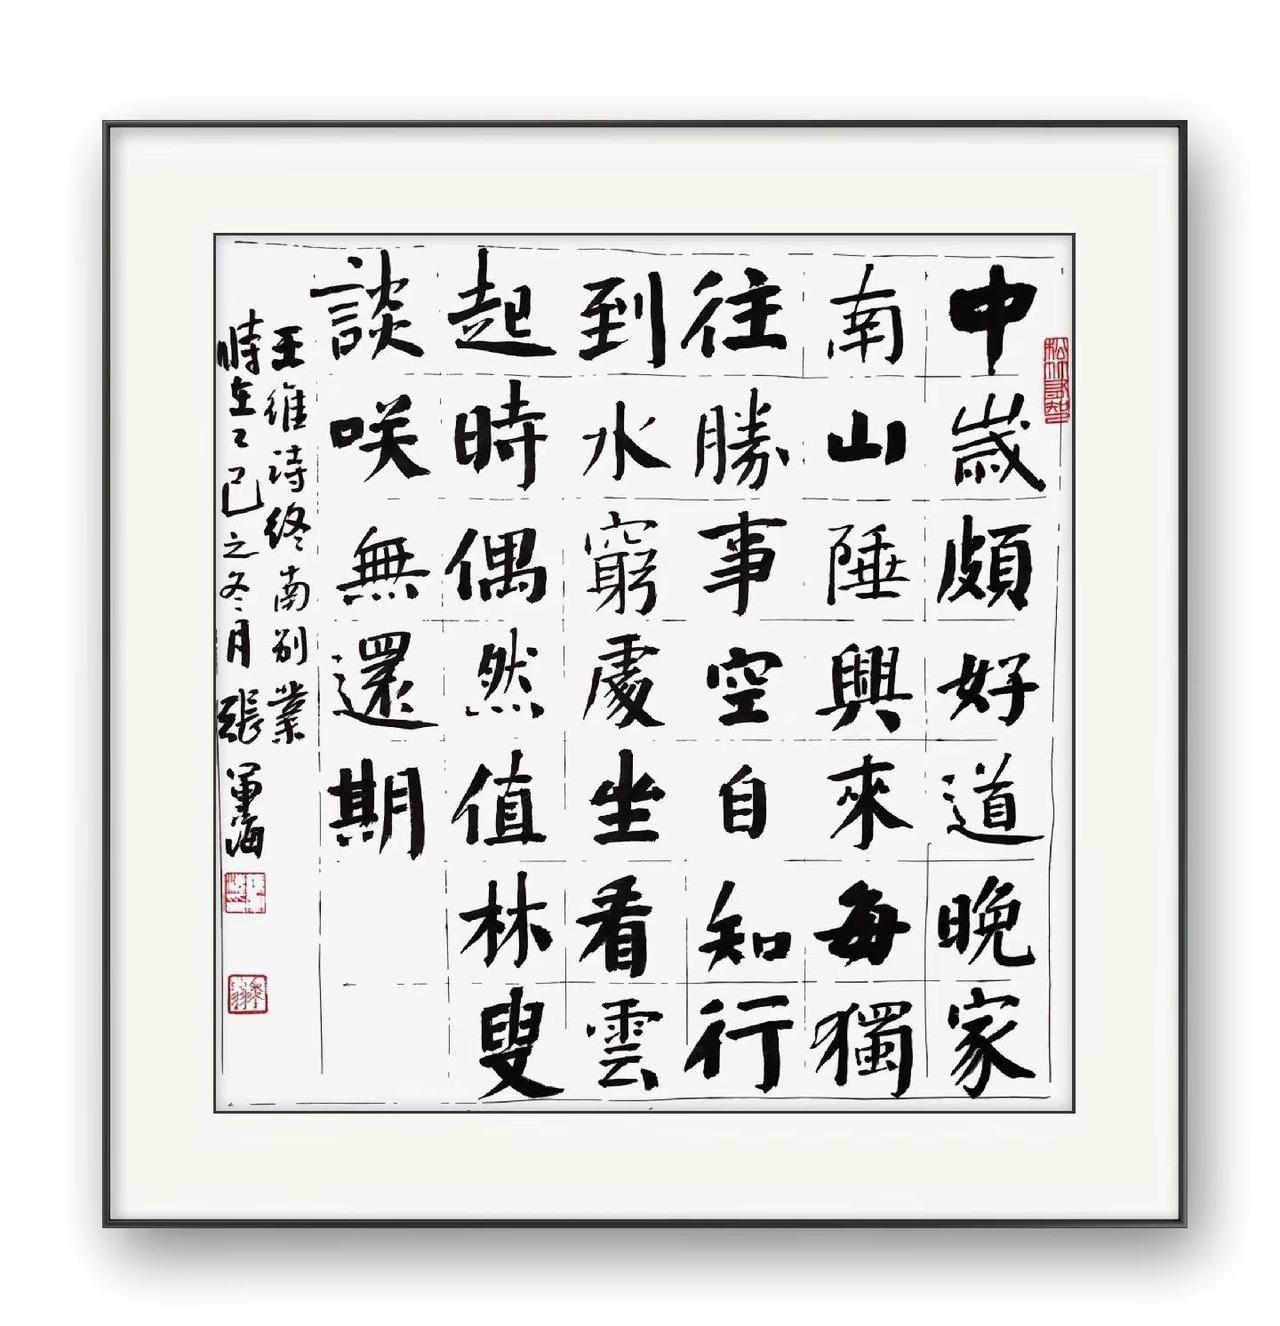 中歲頗好道晚家
南山陲興來每獨
往勝事空自知行
到水窮處坐看雲
起時偶然值林叟
談咲無還期
王維詩終南别業
時在乙巳之冬月張軍海